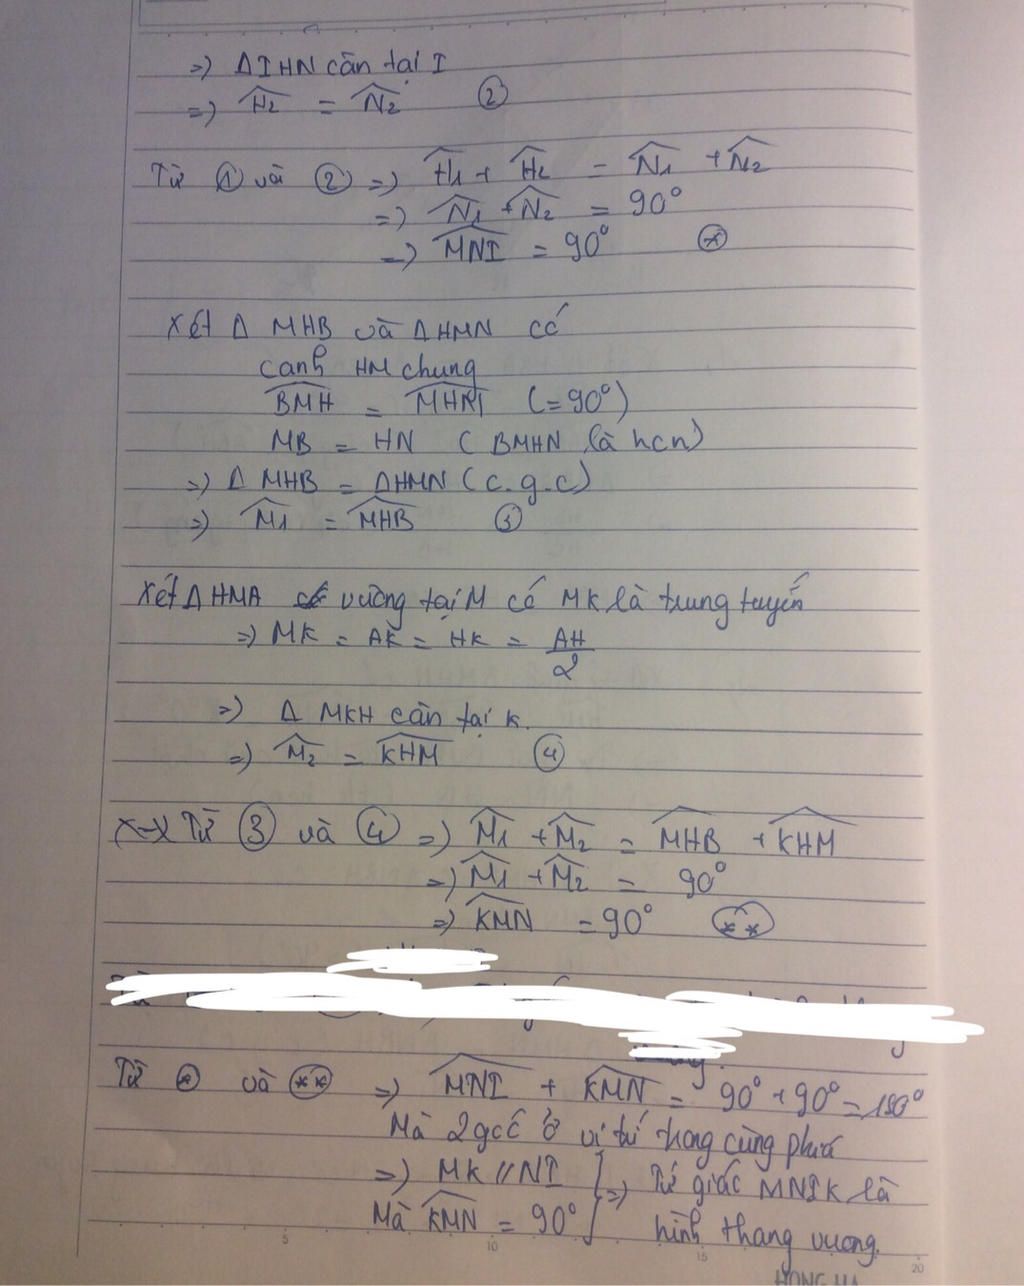 =) ΔIHN cân tại I
=) Ĥ₂ = N̂₂ ②
Từ ① và ② =) Ĥ₁ + Ĥ₂ = N̂₁ + N̂₂
=) N̂₁ + N̂₂ = 90°
=) MNI^ = 90° (*)
Xét Δ MHB và Δ HMN có
cạnh HM chung
BMH^ = MHN^ (= 90°)
MB = HN ( BMHN là hcn)
=) Δ MHB = ΔHMN (c.g.c)
=) M̂₁ = MHB^ ③
Xét Δ HMA vuông tại M có MK là trung tuyến
=) MK = AK = HK = AH/2
=) Δ MKH cân tại K.
=) M̂₂ = KHM^ ④
Từ ③ và ④ =) M̂₁ + M̂₂ = MHB^ + KHM^
=) M̂₁ + M̂₂ = 90°
=) KMN^ = 90° (**)
Từ (*) và (**) =) MNI^ + KMN^ = 90° + 90° = 180°
Mà 2 góc ở vị trí trong cùng phía
=) MK // NI } =) Tứ giác MNIK là
Mà KMN^ = 90° hình thang vuông.
5 10 15 20
HONG HA